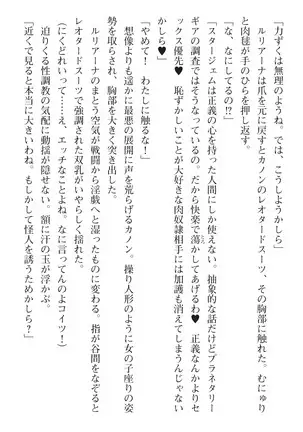 「力ずくは無理のようね。では、こうしようかしら」
ルリアーナは爪を元に戻すとカノンのレオタードスーツ、その胸部に触れた。むにゅり
と肉毬が手のひらを押し返す。
「な、なにしてるの!?」
「スタージェムは正義の心をもった人間にしか使えない。抽象的な話だけどプラネタリー
ギアの調査ではそうなっているの。だから快楽で蕩かしてあげるわ♥　正義なんかよりセ
ックス優先♥　恥ずかしいことが大好きな肉奴隷相手には加護も消えてしまうんじゃない
かしら♥」
「やめて！　わたしに触るな！」
想像よりも遥かに最悪の展開に声を荒らげるカノン。操り人形のように女の子座りの姿
勢を取らされ、胸部を大きく突き出した。
ルリアーナのまとう空気が戦闘から淫戯へと湿ったものに変わる。指が谷間をなぞると
レオタードスーツで強調された双乳がいやらしく揺れた。
（にくどれいって……え、エッチなことよね。なに言ってんのよコイツ！）
迫りくる性調教の気配に動揺が隠せない。額に汗の玉が浮かぶ。
「近くで見ると本当に大きいわね。もしかして怪人を誘うためかしら？」